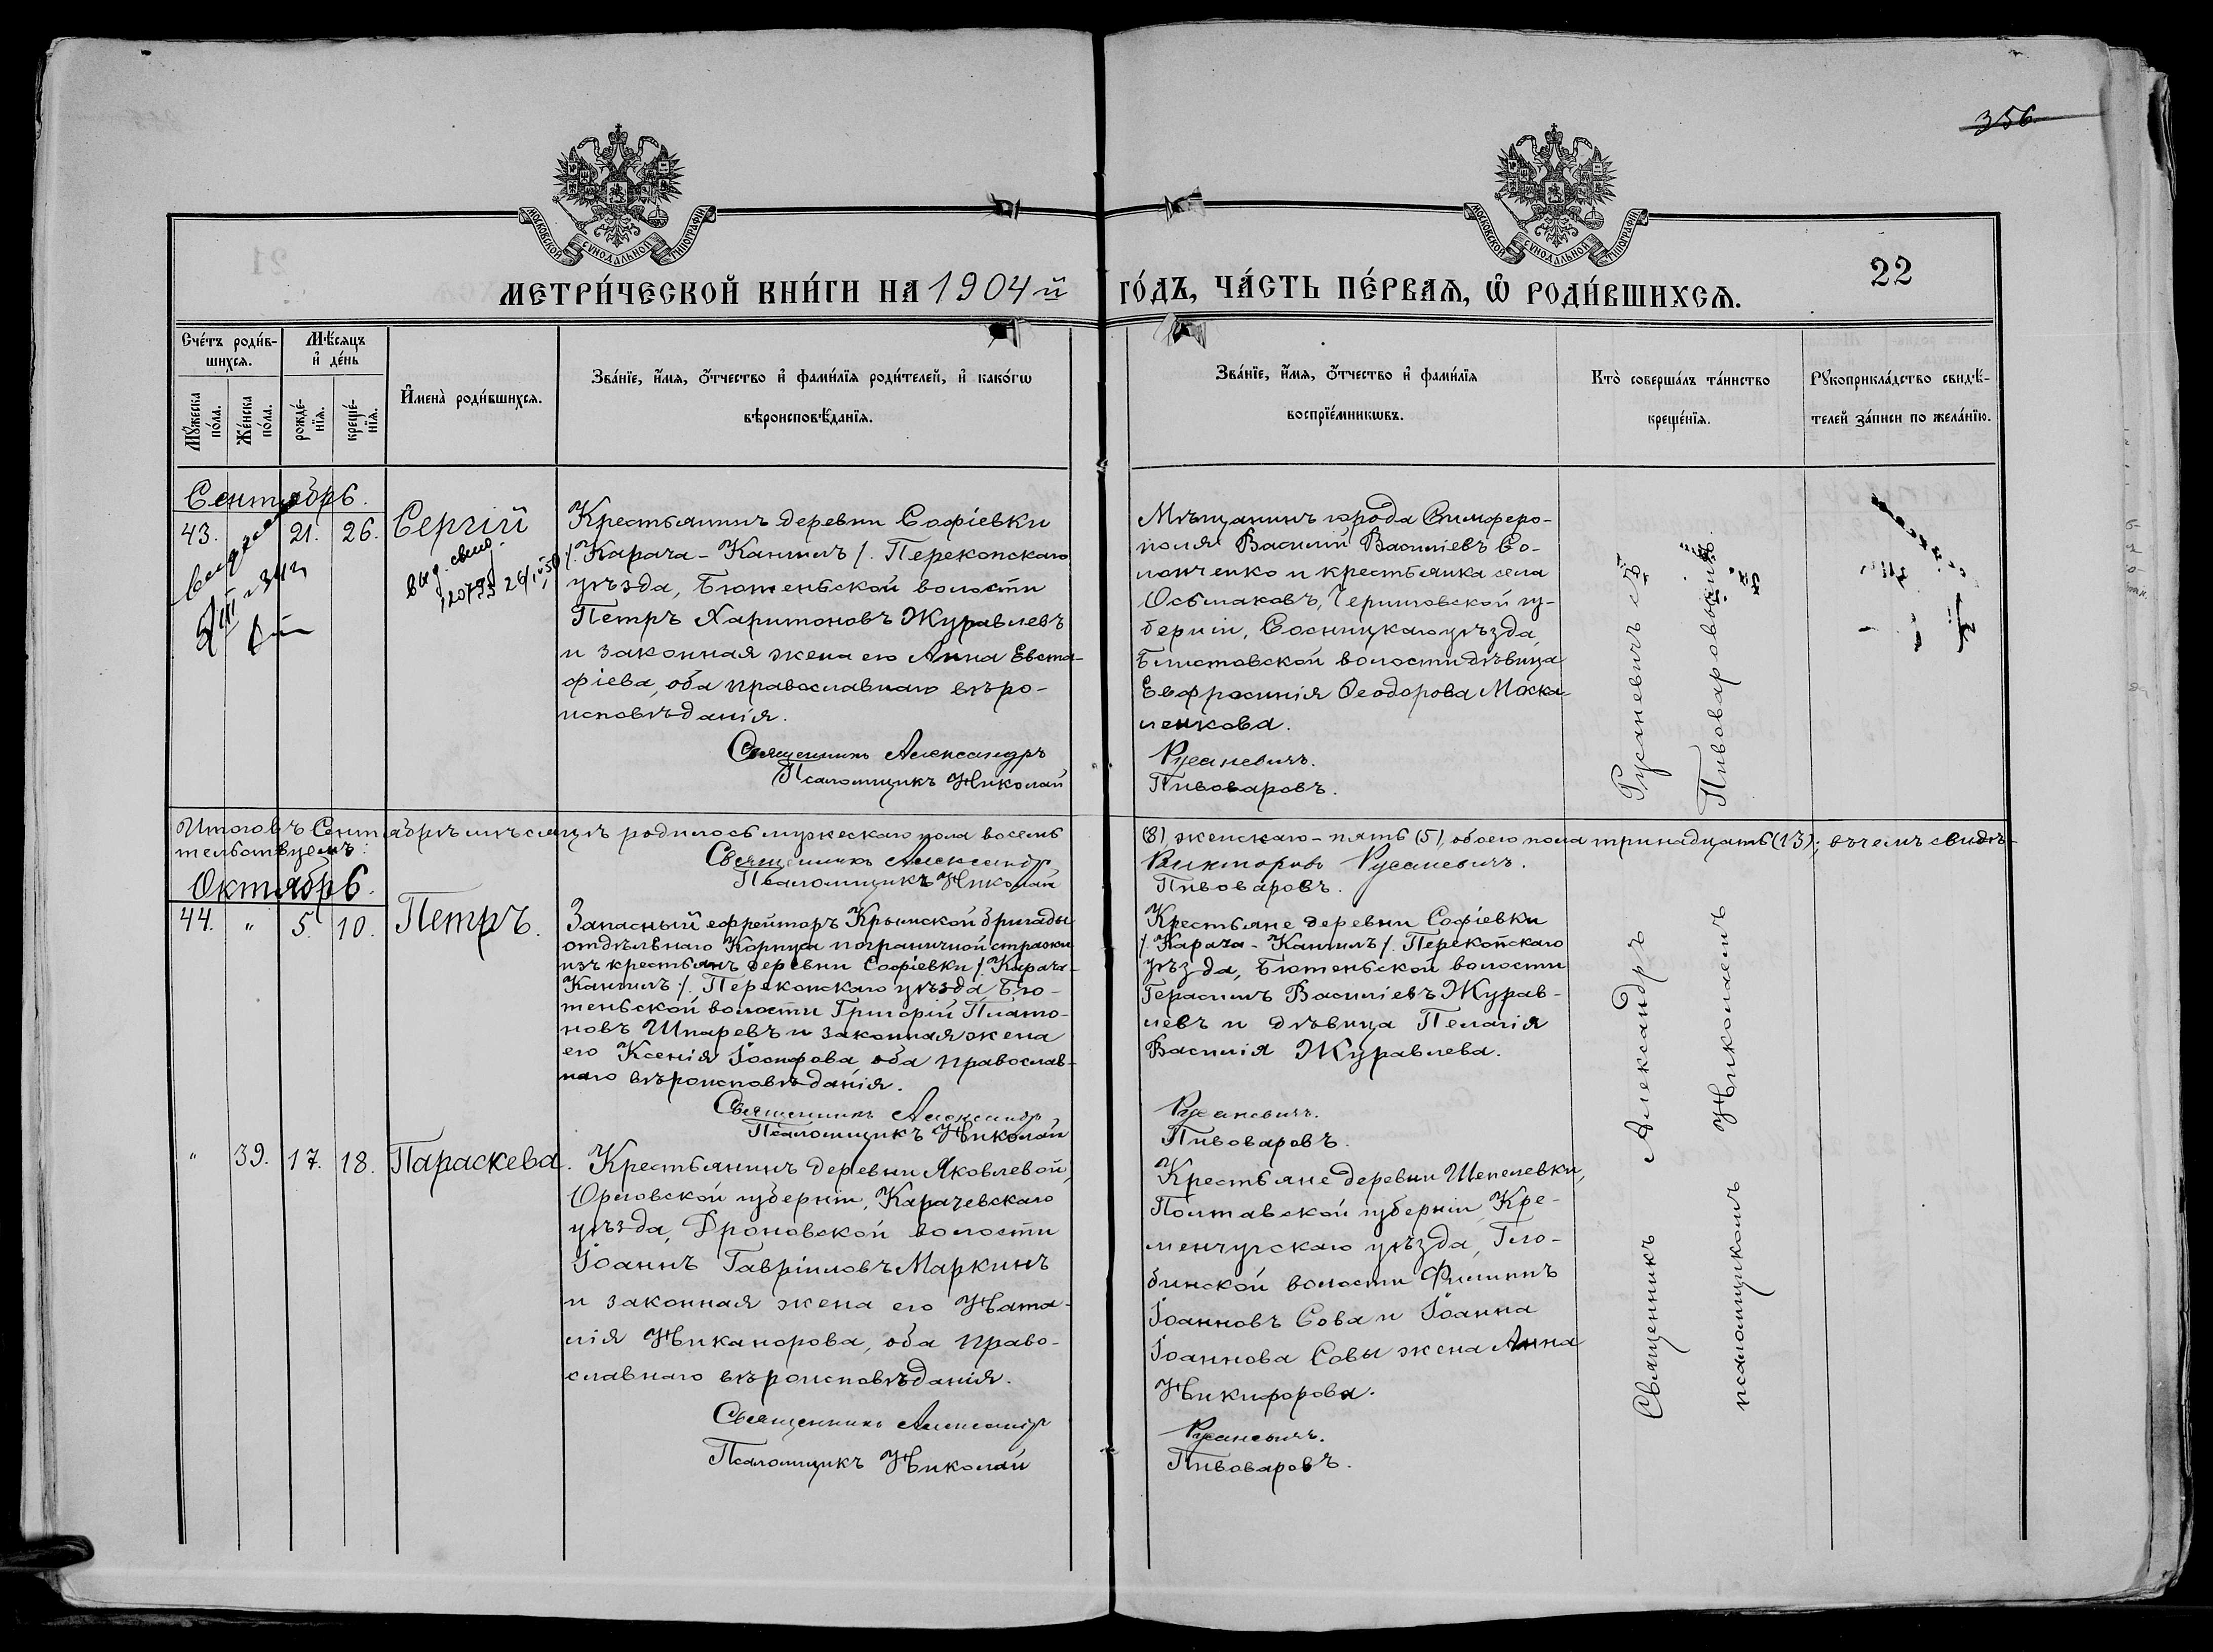 356
МОСКОВСКОЙ СѴНОДАЛЬНОЙ ТИПОГРАФІИ
МОСКОВСКОЙ СѴНОДАЛЬНОЙ ТИПОГРАФІИ
22
МЕТРИ́ЧЕСКОЙ КНИ́ГИ НА 1904й
ГО́ДЪ, ЧА́СТЬ ПЕ́РВАѦ, Ѿ РОДИ́ВШИХСѦ.
Сче́тъ роди́в-
шихсѧ.
Мѣ́сѧцъ
и҆ де́нь
Мꙋ́жеска
по́ла.
Же́нска
по́ла.
рожде́-
нїѧ.
креще́-
нїѧ.
И҆мена̀ роди́вшихсѧ.
Зва́нїе, и҆́мѧ, ѻ҆́тчество и҆ фами́лїѧ роди́телей, и҆ како́гѡ
вѣроисповѣ́данїѧ.
Зва́нїе, и҆́мѧ, ѻ҆́тчество и҆ фами́лїѧ
воспрїе́мникѡвъ.
Кто̀ соверша́лъ та́инство
креще́нїѧ.
Рꙋкоприкла́дство свидѣ́-
телей за́писи по жела́нїю.
Сентябрь.
43. 21. 26. Сергій
выд. свид.
Крестьянинъ деревни Софіевки
/. Карача-Кангилъ /. Перекопскаго
уѣзда, Бютеньской волости
Петръ Харитоновъ Журавлевъ
и законная жена его Анна Евста-
фіева, оба православнаго вѣро-
исповѣданія.
Священникъ Александръ
Псаломщикъ Николай
Мѣщанинъ города Симферо-
поля Василий Василіевъ Со-
лонченко и крестьянка села
Осьмаковъ, Черниговской гу-
берніи, Сосницкаго уѣзда,
Блистовской волости дѣвица
Евфросинія Ѳеодорова Моска-
ленкова.
Русаневичъ.
Пивоваровъ.
Русаневичъ съ
Пивоваровымъ.
Итого въ Сентябрѣ мѣсяцѣ родилось мужескаго пола восемь
(8), женскаго-пять (5), обоего пола тринадцать (13); въ чемъ свидѣ-
тельствуемъ:
Священникъ Александр
Викторовъ Русаневичъ.
Псаломщикъ Николай
Пивоваровъ.
Октябрь.
44. " 5. 10. Петръ.
Запасный ефрейторъ Крымской бригады
отдѣльнаго Корпуса пограничной стражи
изъ крестьянъ деревни Софіевки /. Карача-
Кангилъ /. Перекопскаго уѣзда, Бю-
теньской волости Григорій Плато-
новъ Шпаревъ и законная жена
его Ксенія Іосифова, оба православ-
наго вѣроисповѣданія.
Священникъ Александр
Псаломщикъ Николай
Крестьяне деревни Софіевки
/. Карача-Кангилъ /. Перекопскаго
уѣзда, Бютеньской волости
Герасимъ Василіевъ Журав-
левъ и дѣвица Пелагія
Василія Журавлева.
Русаневичъ.
Пивоваровъ.
" 39. 17. 18. Параскева.
Крестьянинъ деревни Яковлевой,
Орловской губерніи, Карачевскаго
уѣзда, Дроновской волости
Іоаннъ Гавріиловъ Маркинъ
и законная жена его Ната-
лія Никанорова, оба право-
славнаго вѣроисповѣданія.
Священникъ Александр
Псаломщикъ Николай
Крестьяне деревни Шепелевки,
Полтавской губерніи, Кре-
менчугскаго уѣзда, Гло-
бинской волости Филиппъ
Іоанновъ Сова и Іоанна
Іоаннова Совы жена Анна
Никифорова.
Русаневичъ.
Пивоваровъ.
Священникъ Александръ
псаломщикомъ Николаемъ